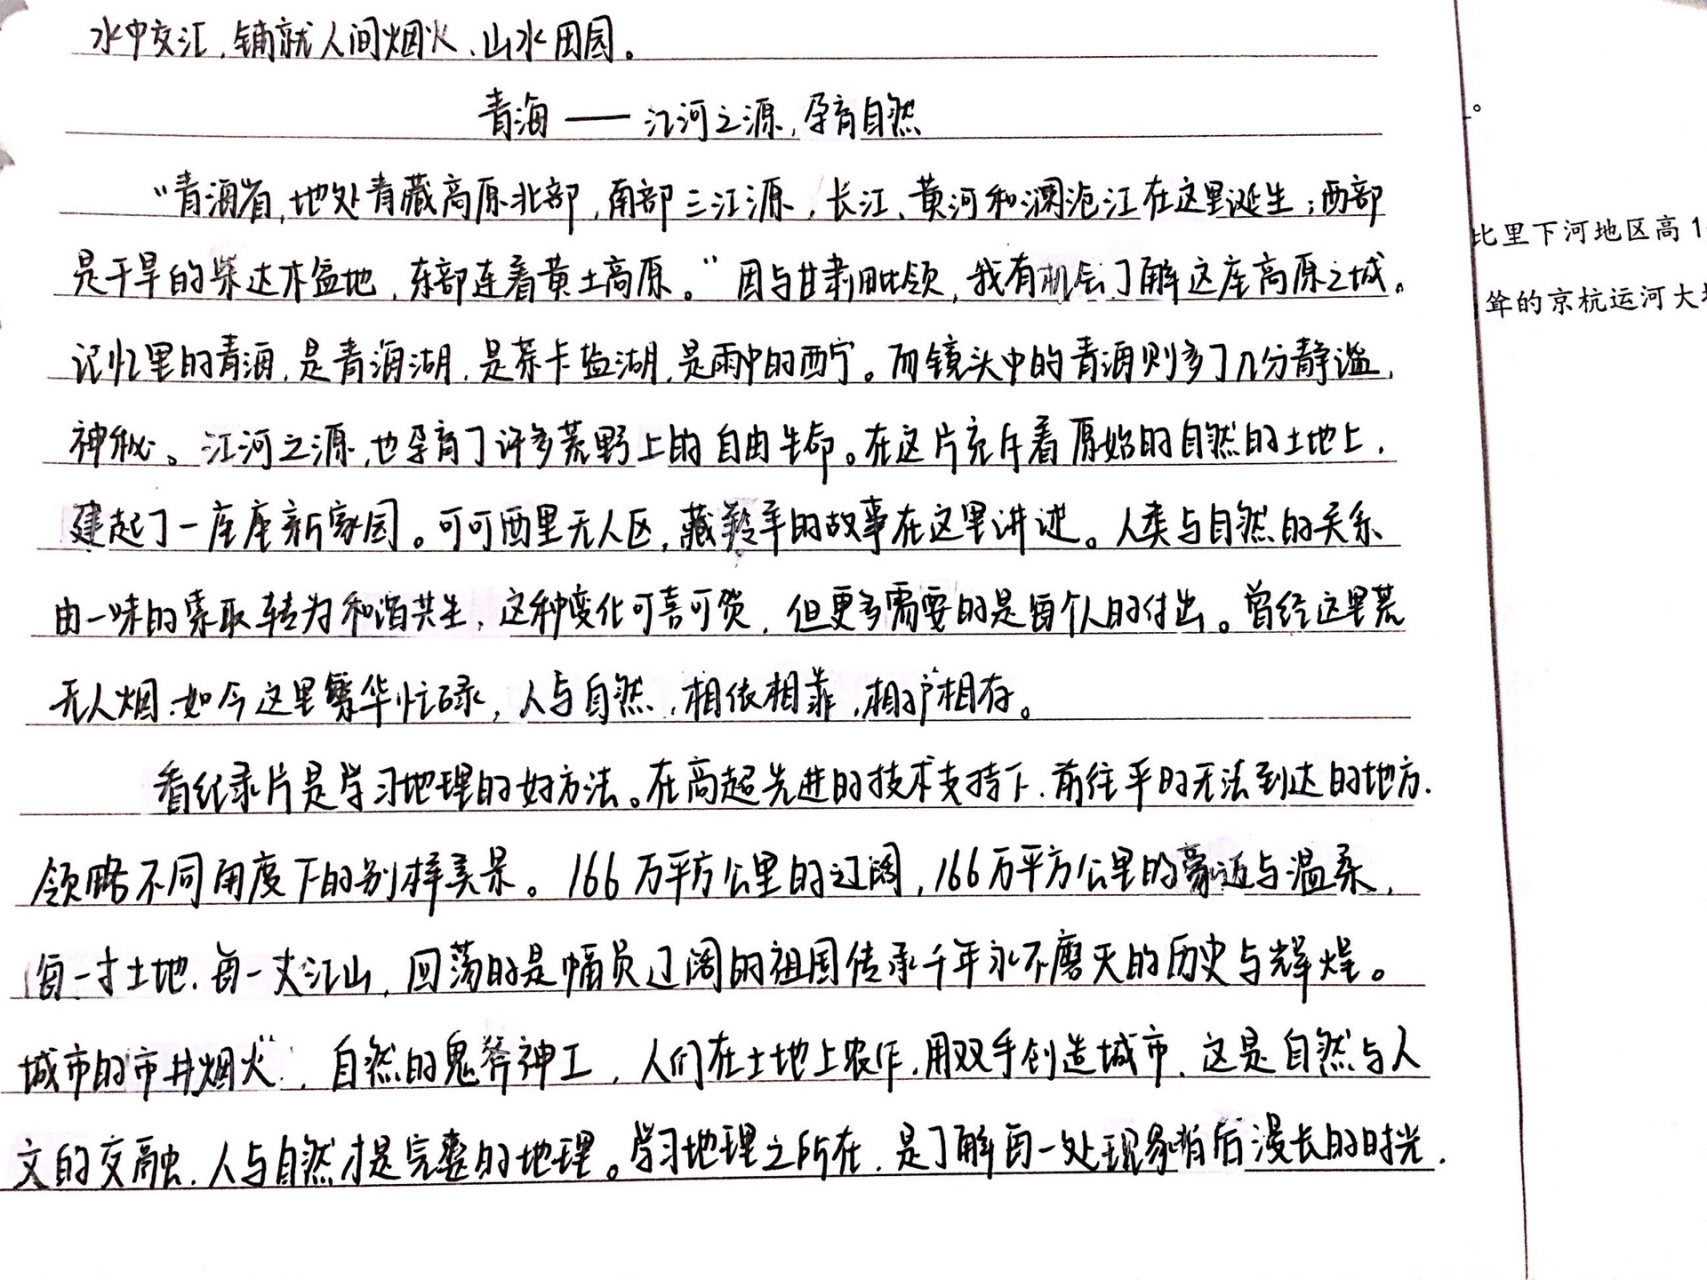 水中交汇，铺就人间烟火、山水田园。
青海——江河之源，孕育自然
“青海省，地处青藏高原北部，南部三江源，长江、黄河和澜沧江在这里诞生；西部
是干旱的柴达木盆地，东部连着黄土高原。”因与甘肃毗领，我有机会了解这座高原之城。
记忆里的青海，是青海湖，是茶卡盐湖，是雨中的西宁。而镜头中的青海则多了几分静谧，
神秘。江河之源，也孕育了许多荒野上的自由生命。在这片充斥着原始的自然的土地上，
建起了一座座新家园。可可西里无人区，藏羚羊的故事在这里讲述。人类与自然的关系
由一味的索取转为和谐共生，这种变化可喜可贺，但更多需要的是每个人的付出。曾经这里荒
无人烟，如今这里繁华忙碌，人与自然，相依相靠，相护相存。
看纪录片是学习地理的好方法。在高超先进的技术支持下，前往平时无法到达的地方，
领略不同角度下的别样美景。166万平方公里的辽阔，166万平方公里的豪迈与温柔，
每一寸土地，每一丈江山，回荡的是幅员辽阔的祖国传承千年永不磨灭的历史与辉煌。
城市的市井烟火，自然的鬼斧神工，人们在土地上农作，用双手创造城市，这是自然与人
文的交融，人与自然才是完整的地理。学习地理之所在，是了解每一处现象背后漫长的时光，
。
比里下河地区高1
耸的京杭运河大